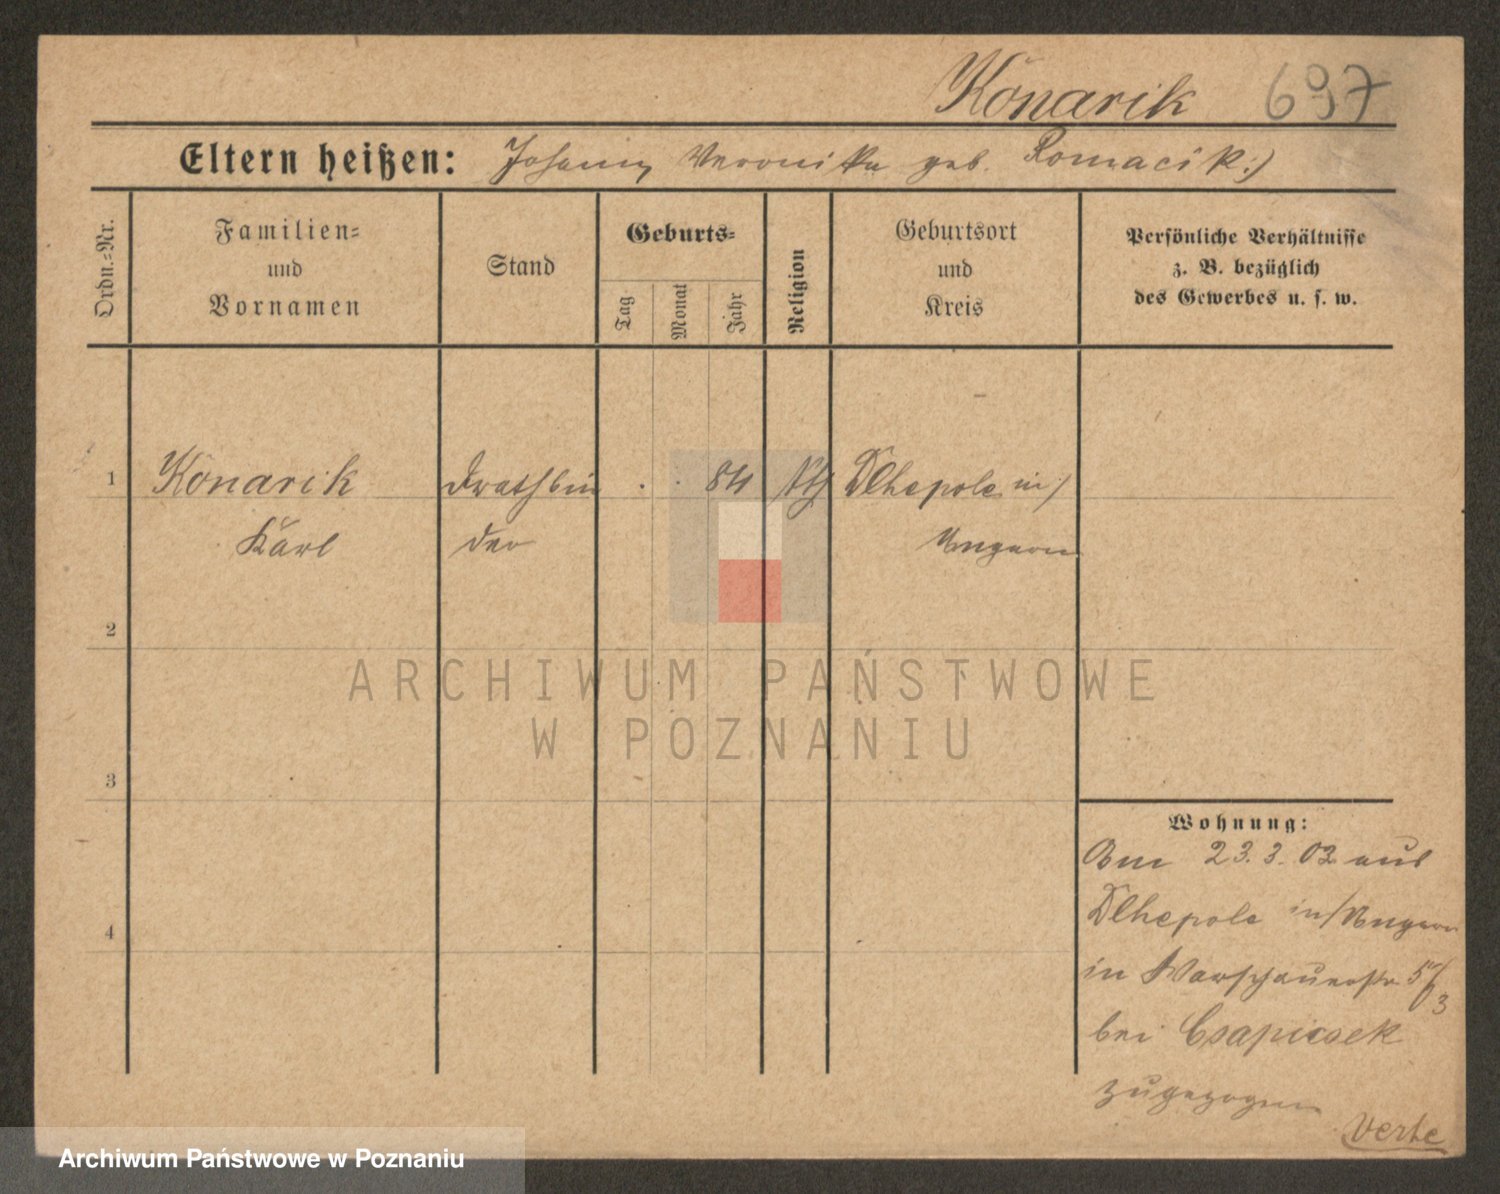 Konarik 697
Eltern heißen: Johann, Veronika geb. Romacik :)
Ordn.-Nr.
Familien-
und
Vornamen
Stand
Geburts-
Tag
Monat
Jahr
Religion
Geburtsort
und
Kreis
Persönliche Verhältnisse
z. B. bezüglich
des Gewerbes u. s. w.
1 Konarik Drathbin . . 84 kth Dlhepole in/
Karl der Ungarn
2
3
4
ARCHIWUM PAŃSTWOWE
W POZNANIU
Wohnung:
Am 23.3.02 aus
Dlhepole in/Ungarn
in Warschauerstr 5/3
bei Csapicsek
zugezogen
Verte
Archiwum Państwowe w Poznaniu